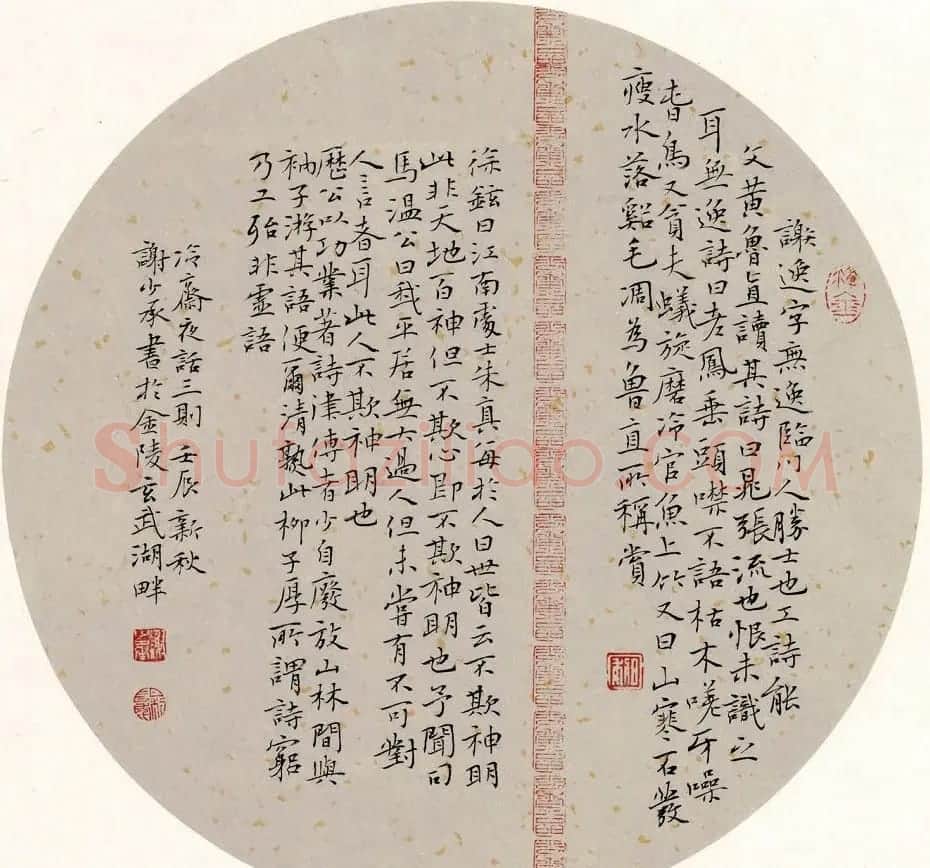 謝逸字無逸臨川人勝士也工詩能
文黃魯直讀其詩曰晁張流也恨未識之
耳無逸詩曰老鳳垂頭噤不語枯木嗟牙噪
春鳥又貪夫蟻旋磨冷官魚上竹又曰山寒石髮
瘦水落谿毛凋為魯直所稱賞
徐鉉曰江南處士朱真每於人曰世皆云不欺神明
此非天地百神但不欺心即不欺神明也予聞司
馬温公曰我平居無大過人但未嘗有不可對
人言者耳此人不欺神明也
歷公以功業著詩津傅者少自廢放山林間與
衲子游其語便爾清熟此柳子厚所謂詩窮
乃工殆非虛語
冷齋夜話三則 壬辰新秋
謝少承書於金陵玄武湖畔
Shufaziliao.COM